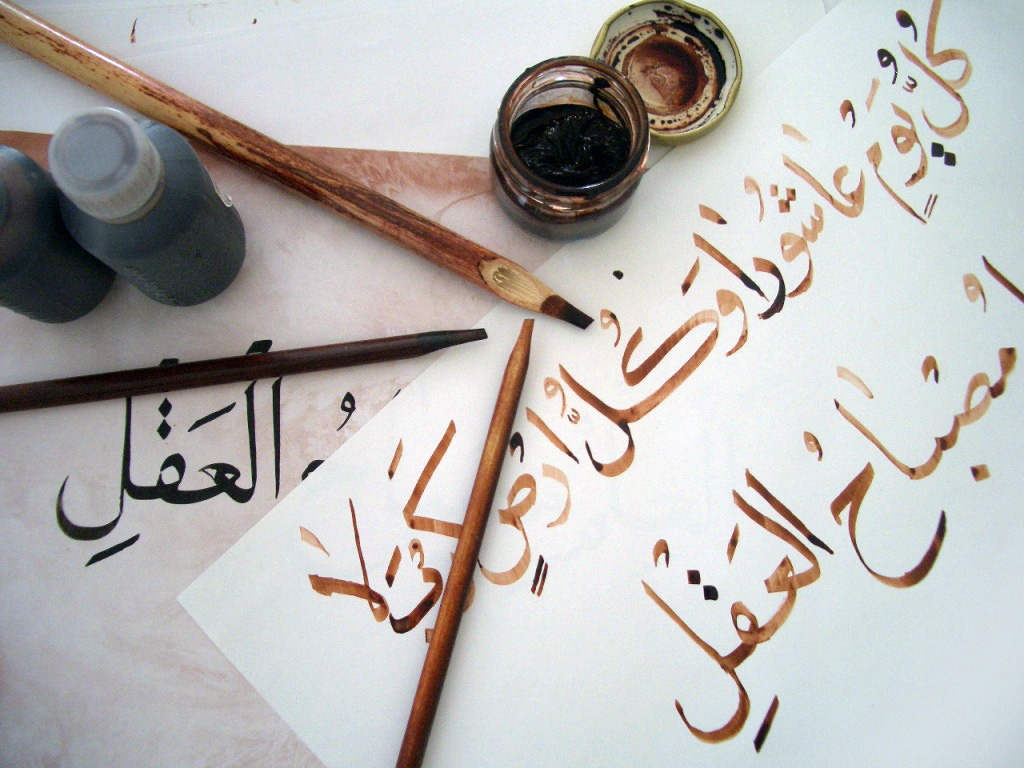 كُلُّ يَومٍ عَاشُورَا وَكُلُّ اَرضٍ كَربَلا
مُصبَاحُ العَقلِ
العَقلِ